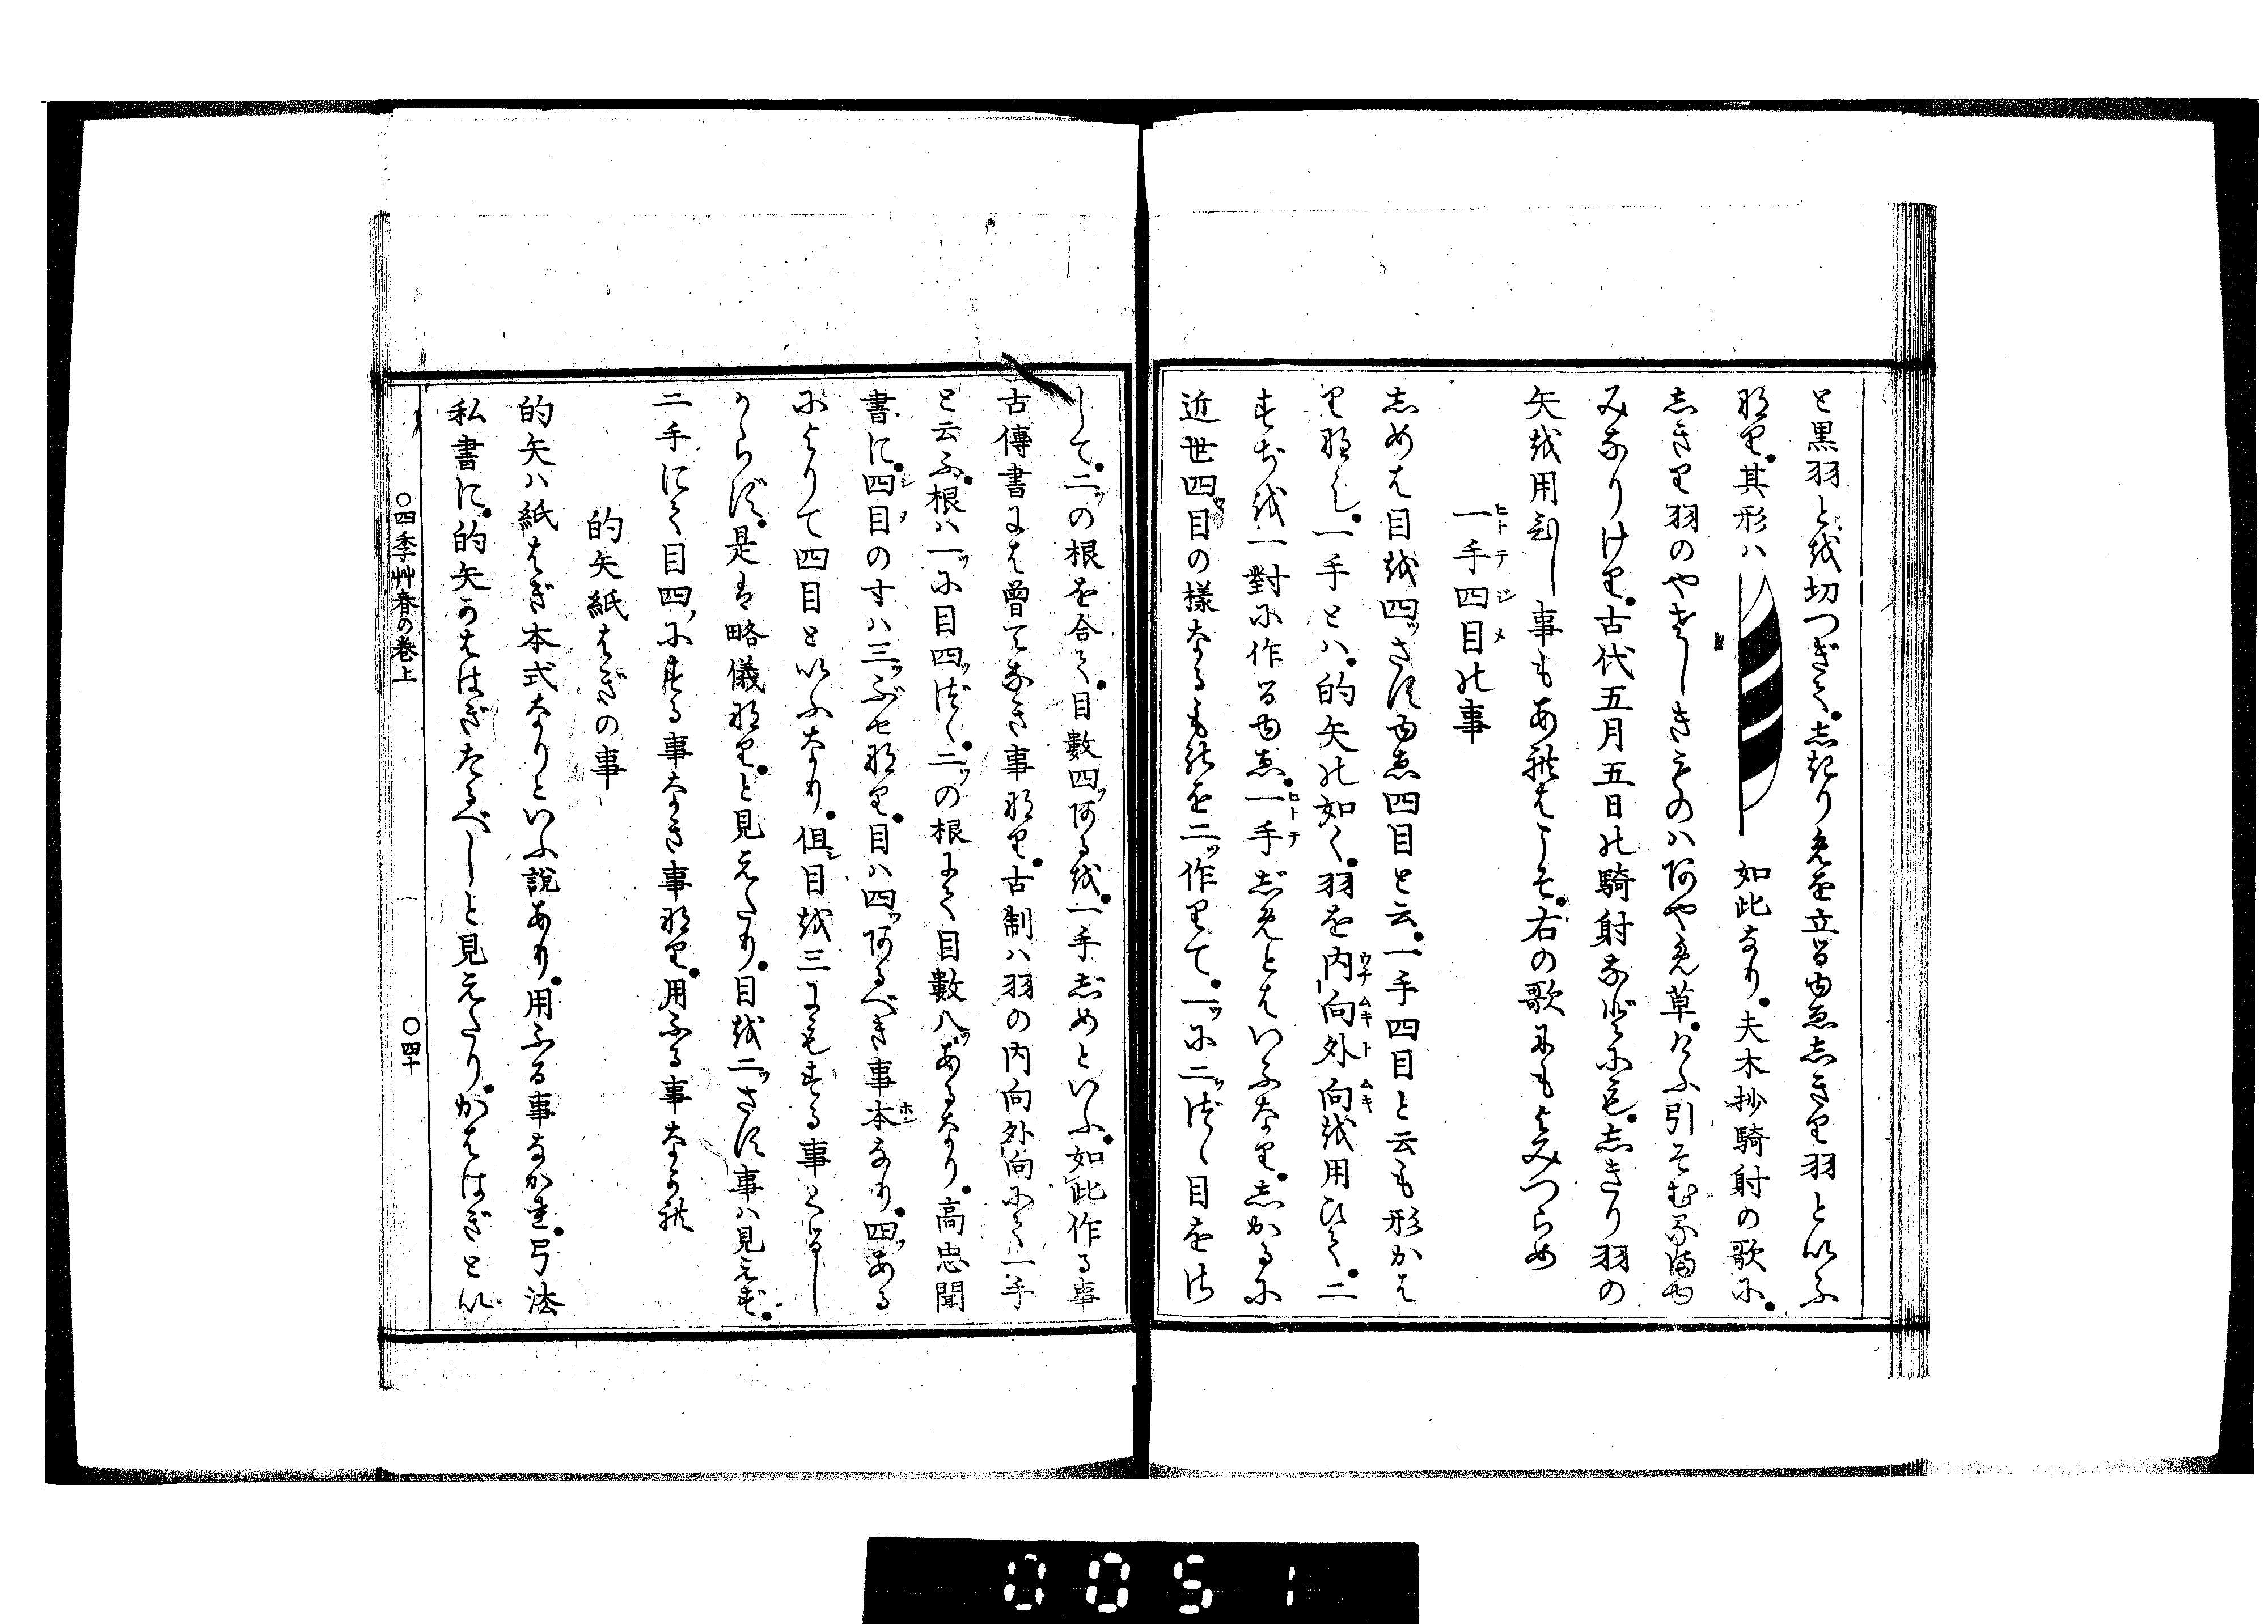 と黒羽とを切つぎて。志起りめを立る由ゑ志きり羽といふ
なり。其形ハ 如此なり。夫木抄騎射の歌に。
志きり羽のやさしきものハあやめ草。けふ引そむる
みなりけり。古代五月五日の騎射などにも。志きり羽の
矢を用ひし事もあればこそ。右の歌にもよみつらめ
一手四目の事
ヒトテジメ
志めは目を四ッさす由ゑ四目と云。一手四目と云も形かは
りなし。一手とハ。的矢の如く。羽を内向外向を用ひて。二
ウチムキトムキ
すぢを一對に作る由ゑ。一手じめとはいふなり。志かるに
ヒトテ
近世四目の様なるものを二ッ作りて。一ッに二ッづゝ目をさ
して。二ッの根を合て。目數四ッあるを。一手じめといふ。如此作る事
古傳書には曽てなき事なり。古制ハ羽の内向外向にて一手
と云ふ。根ハ一ッに目四ッづゝ。二ッの根にて目數八ッあるなり。高忠聞
書に。四目の寸ハ三ッぶセなり。目ハ四ッあるべき事本なり。四ッある
シメ
ホン
によりて四目といふなり。但目を三にもする事くるし
からず。是は略儀なり。と見えたり。目を二ッさす事ハ見えず。
二手にて目四ッにする事なき事なり。用ふる事なかれ
的矢紙はぎの事
的矢ハ紙はぎ本式なりといふ説あり。用ふる事なかれ。弓法
私書に。的矢かはゝぎたるべしと見えたり。かはゝぎとい
○四季艸春の巻上
○四十
0051